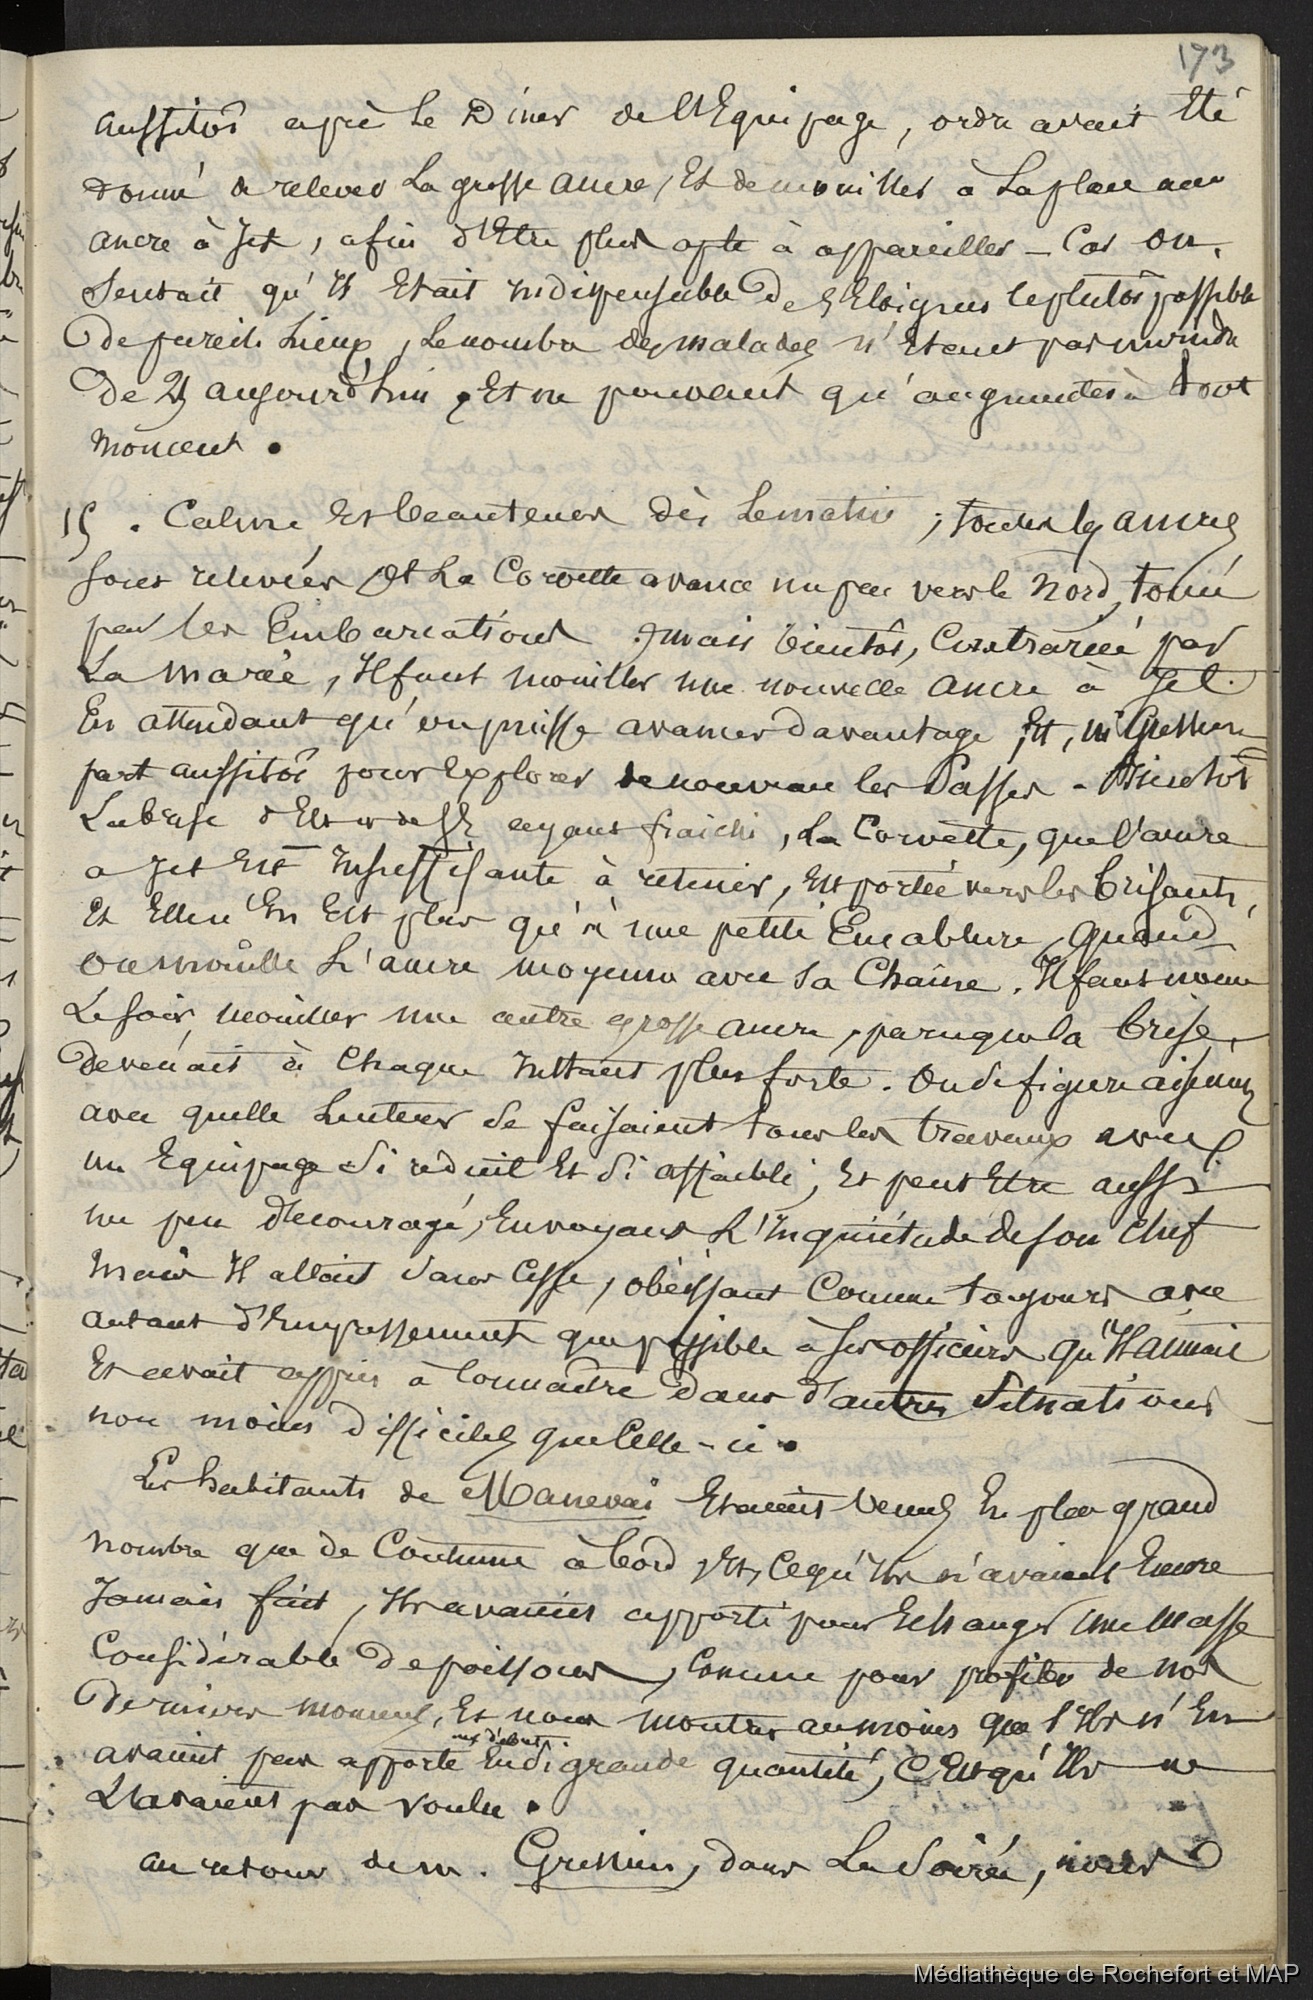 173
aussitôt après le Diner de l'Equipage, ordre avait Eté
donné de relever la grosse ancre, Et de mouiller à la place une
ancre à Jet, afin d'Etre plus apte à appareiller - Car on
Sentait qu'Il Etait Indispensable De s'Eloigner le plutôt possible
De pareils Lieux, Le nombre des malades n'Etant pas moindre
De 29 aujourd'hui, Et ne pouvant qu'augmenter à tout
moment.
15. Calme Et beau tems dès Le matin; toutes les ancres
sont relevées Et La Corvette avance un peu vers le Nord, touée
par les Embarcations. mais bientôt, Contrariée par
La marée, Il faut mouiller une nouvelle ancre à Jet
En attendant qu'on puisse avancer davantage, Et, Mr Gressien
part aussitôt pour Explorer de nouveau les Passes - Bientôt
La brise d'Est ayant fraîchi, La Corvette, que l'ancre
a Jet Est Insuffisante à retenir, Est portée vers les brisants,
Et Elle n'En Est plus qu'à une petite Encablure, quand
on mouille L'ancre moyenne avec Sa Chaîne. Il faut même
Le soir mouiller une autre grosse ancre, parceque la brise
devenait à Chaque Instant plus forte. On se figure aisément
avec quelle Lenteur Se faisaient tous les travaux avec
un Equipage Si réduit Et Si affaibli, Et peut Etre aussi
un peu découragé, En voyant L'Inquiétude de son Chef
mais Il allait Sans Cesse, obéissant Comme toujours avec
autant d'Empressement que possible à Ses officiers qu'Il aimait
Et avait appris à Connaître Dans d'autres Situations
non moins Difficiles que Celle-ci.
Les habitants de Manevai Etaient Venus En plus grand
nombre que de Coutume à bord, Et, Ce qu'Ils n'avaient Encore
Jamais fait, Ils avaient apporté pour Echanger Une masse
Considérable De poissons, Comme pour profiter de nos
Derniers moments, Et nous montrer au moins que s'Ils n'En
aux débuts
avaient pas apporté En Si grande quantité, C'Est qu'Ils ne
L'avaient pas Voulu.
au retour de M. Gressien, dans La Soirée, nous
Médiathèque de Rochefort et MAP